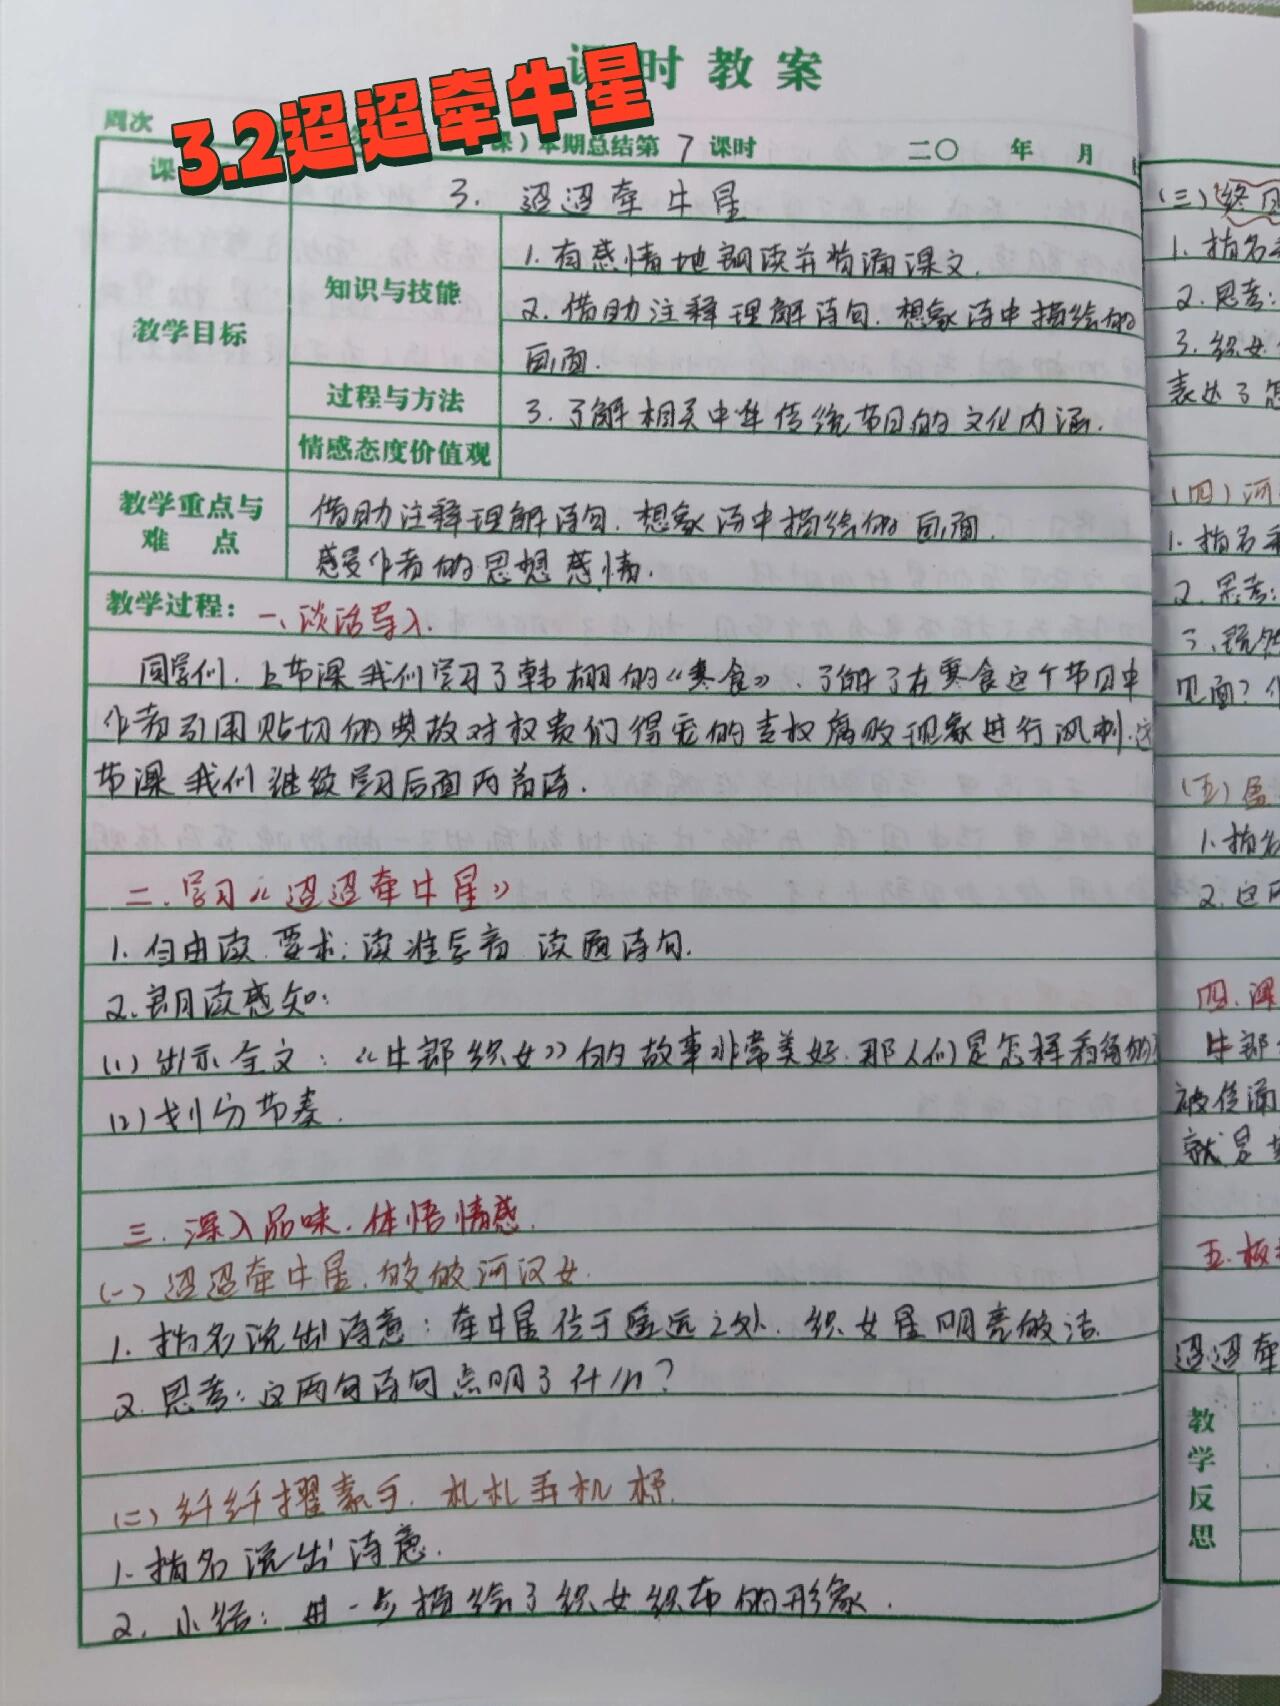 课时教案
3.2迢迢牵牛星
周次
课）本期总结第 7 课时 二〇 年 月
课
3. 迢迢牵牛星
教学目标
知识与技能
1. 有感情地朗读并背诵课文.
2. 借助注释理解诗句. 想象诗中描绘的
画面.
过程与方法
3. 了解相关中华传统节日的文化内涵.
情感态度价值观
教学重点与
难 点
借助注释理解诗句. 想象诗中描绘的画面.
感受作者的思想感情.
教学过程：一、谈话导入.
同学们. 上节课我们学习了韩翃的《寒食》、了解了在寒食这个节日中
作者引用贴切的典故对权贵们得宠的专权腐败现象进行讽刺. 这
节课我们继续学习后面两首诗.
二. 学习《迢迢牵牛星》
1. 自由读. 要求: 读准字音 读通诗句.
2. 朗读感知:
(1) 出示全文: 《牛郎织女》的故事非常美好. 那人们是怎样看待的
(2) 划分节奏.
三. 深入品味. 体悟情感.
(一) 迢迢牵牛星. 皎皎河汉女.
1. 指名说出诗意: 牵牛星位于遥远之处. 织女星明亮皎洁.
2. 思考: 这两句诗句点明了什么?
(二) 纤纤擢素手. 札札弄机杼.
1. 指名说出诗意.
2. 小结: 进一步描绘了织女织布的形象.
(三) 终日
1. 指名
2. 思考:
3. 织女
表达了怎
(四) 河
1. 指名
2. 思考:
见面?
(五) 盈
1. 指名
2. 这
四. 课
牛郎
被传诵
就是
五. 板
迢迢牵
教学反思